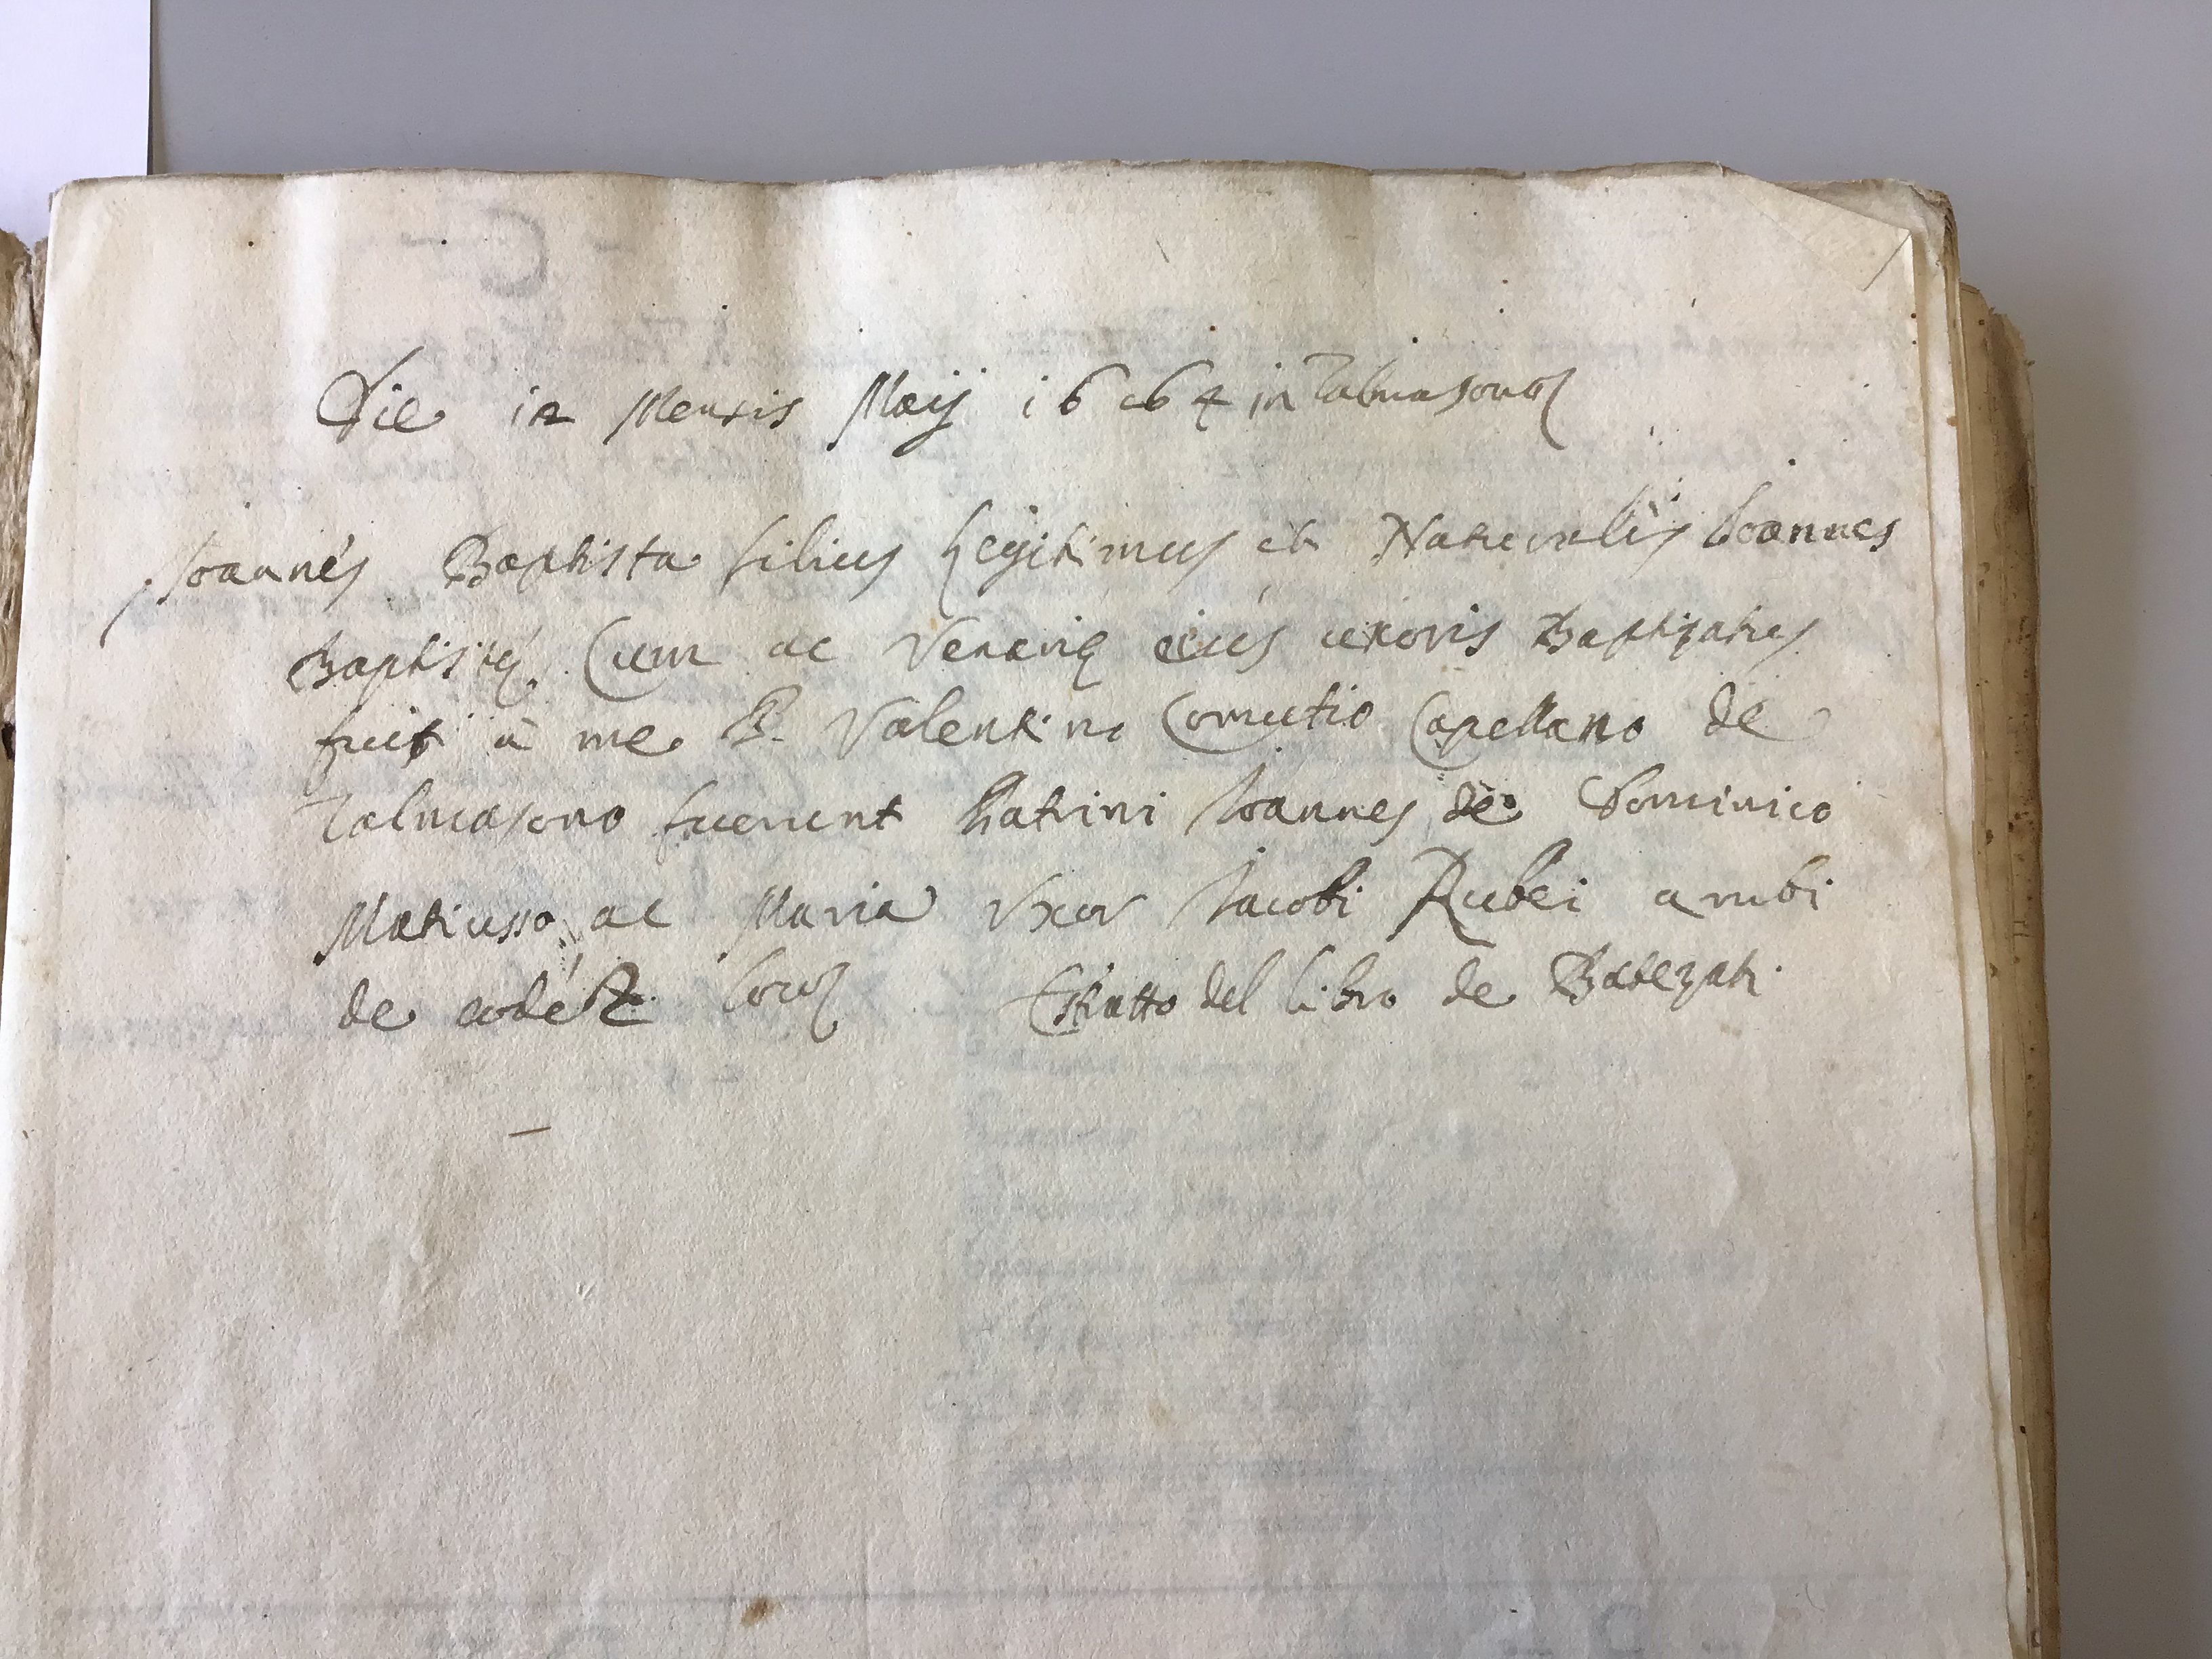 Die 12 Mensis Maij 1664 in Talmasono
Joannes Baptista filius Legitimus et Naturalis Joannes
Baptistę Cum ac Venerię eius uxoris Baptizatus
fuit à me P. Valentino Comutio Capellano de
Talmasono fuerunt Patrini Joannes de Dominico
Matiusso ac Maria Vxor Jacobi Rubei ambi
de eodé loco Estratto del libro de Batezati